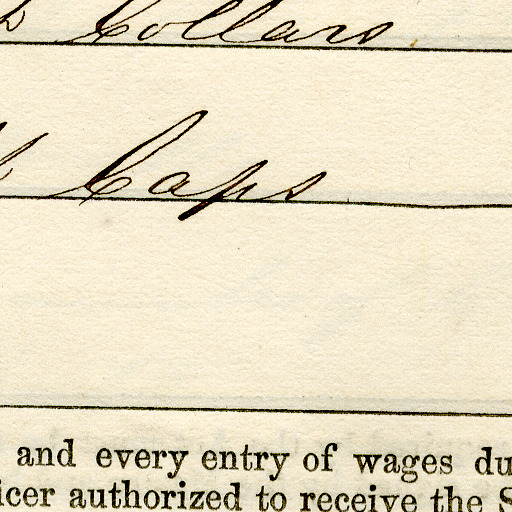 Collars
Caps
and every entry of wages du
icer authorized to receive the S